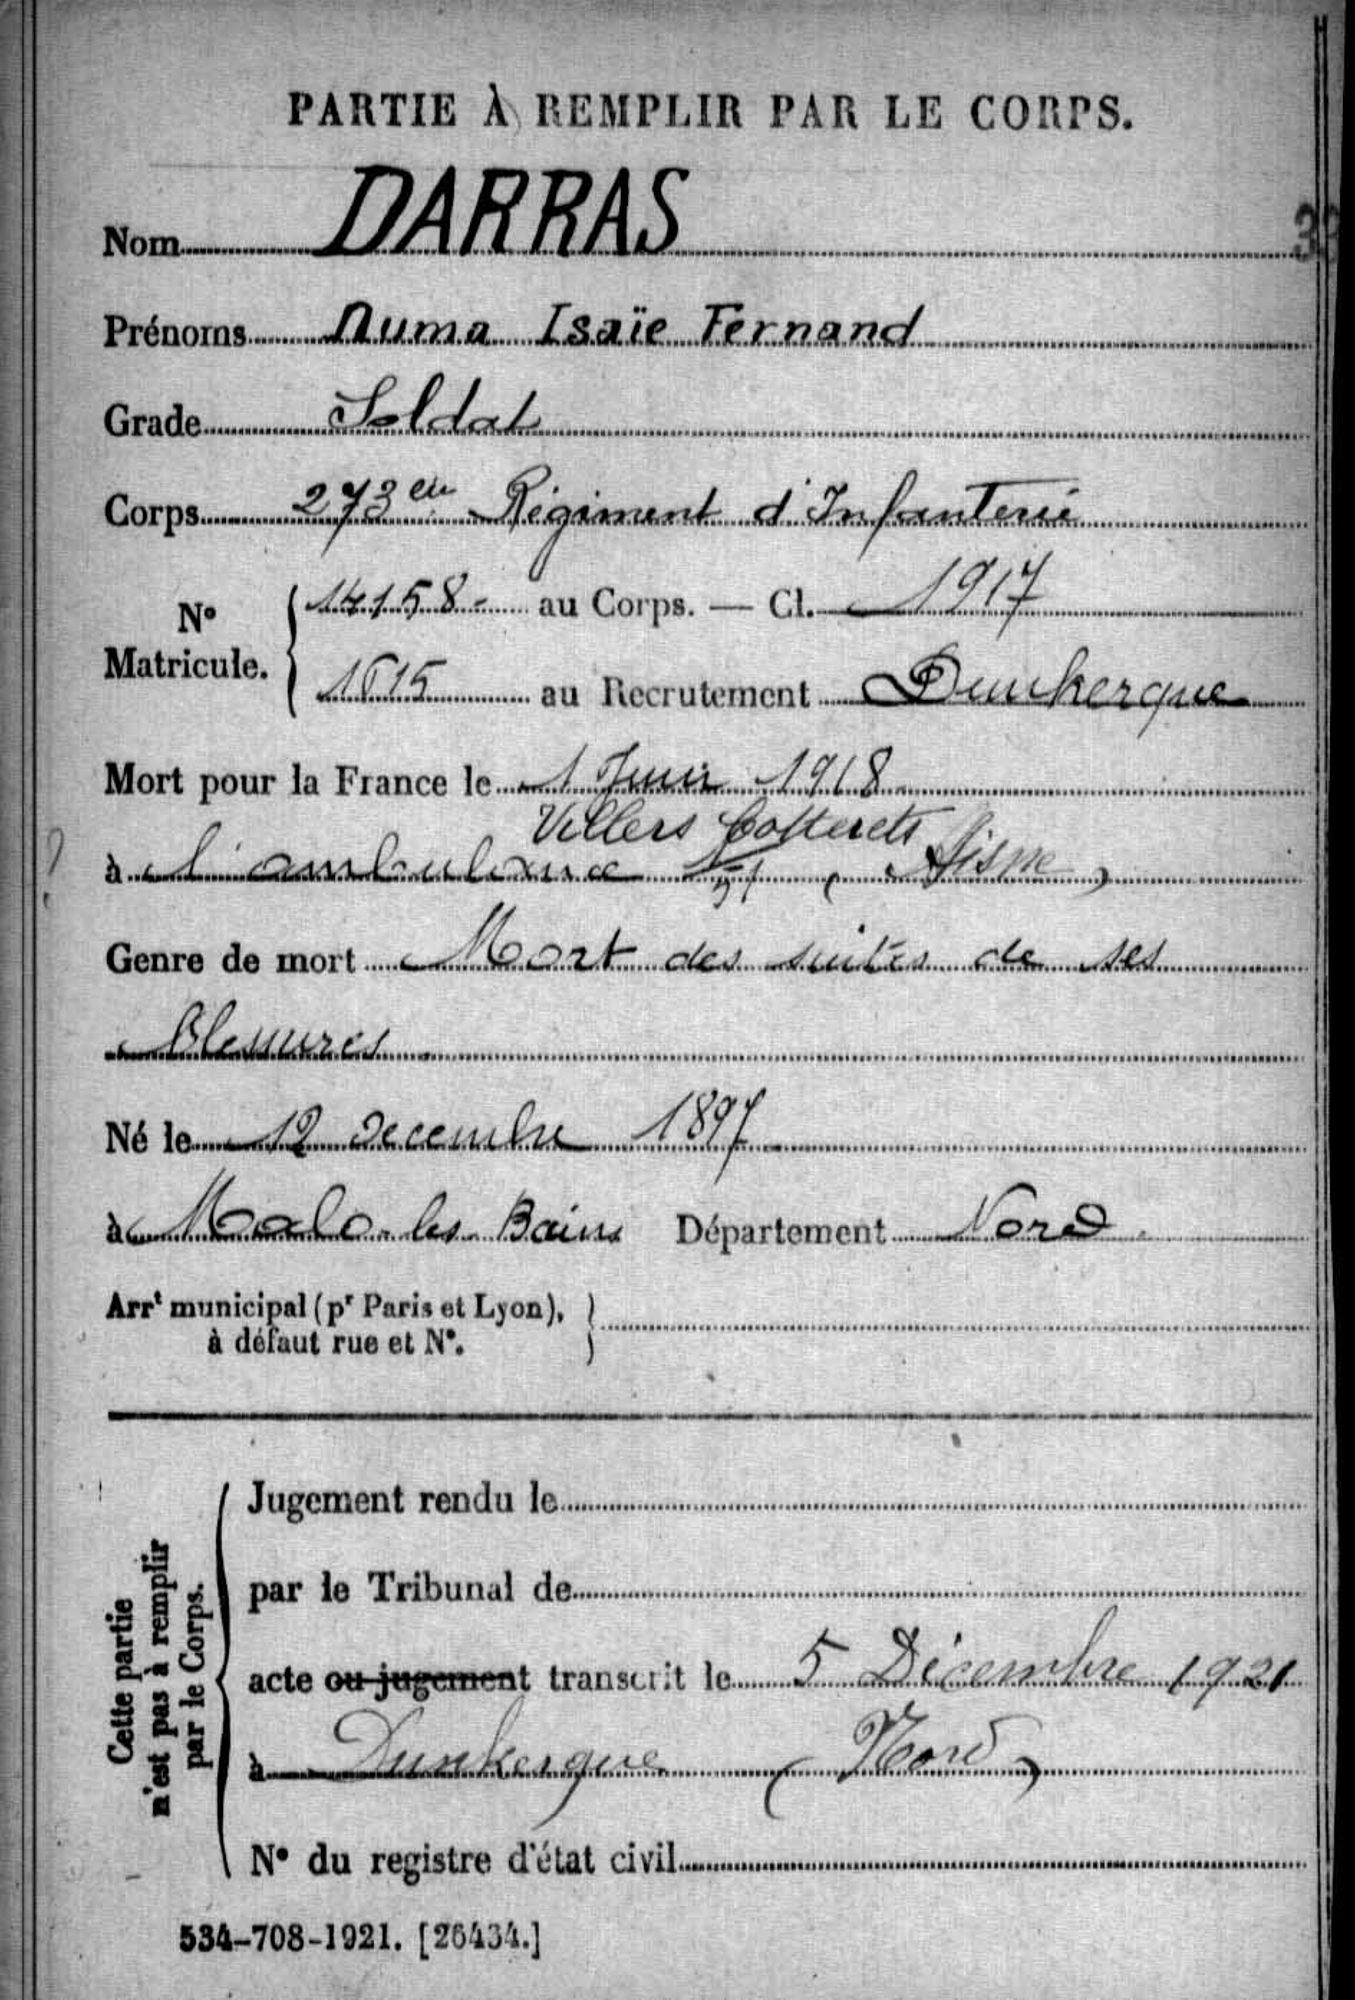 PARTIE À REMPLIR PAR LE CORPS.
Nom DARRAS
Prénoms Numa Isaïe Fernand
Grade Soldat
Corps 273ème Régiment d'Infanterie
N° Matricule. 14158 au Corps. — Cl. 1917
1615 au Recrutement Dunkerque
Mort pour la France le 1 Juin 1918
Villers Cotterets
à l'ambulance (Aisne)
Genre de mort Mort des suites de ses
Blessures
Né le 12 Decembre 1897
à Malo-les-Bains Département Nord
Arrt municipal (pr Paris et Lyon),
à défaut rue et N°.
Cette partie
n'est pas à remplir
par le Corps.
Jugement rendu le
par le Tribunal de
acte ou jugement transcrit le 5 Décembre 1921
à Dunkerque (Nord)
N° du registre d'état civil
534-708-1921. [26434.]